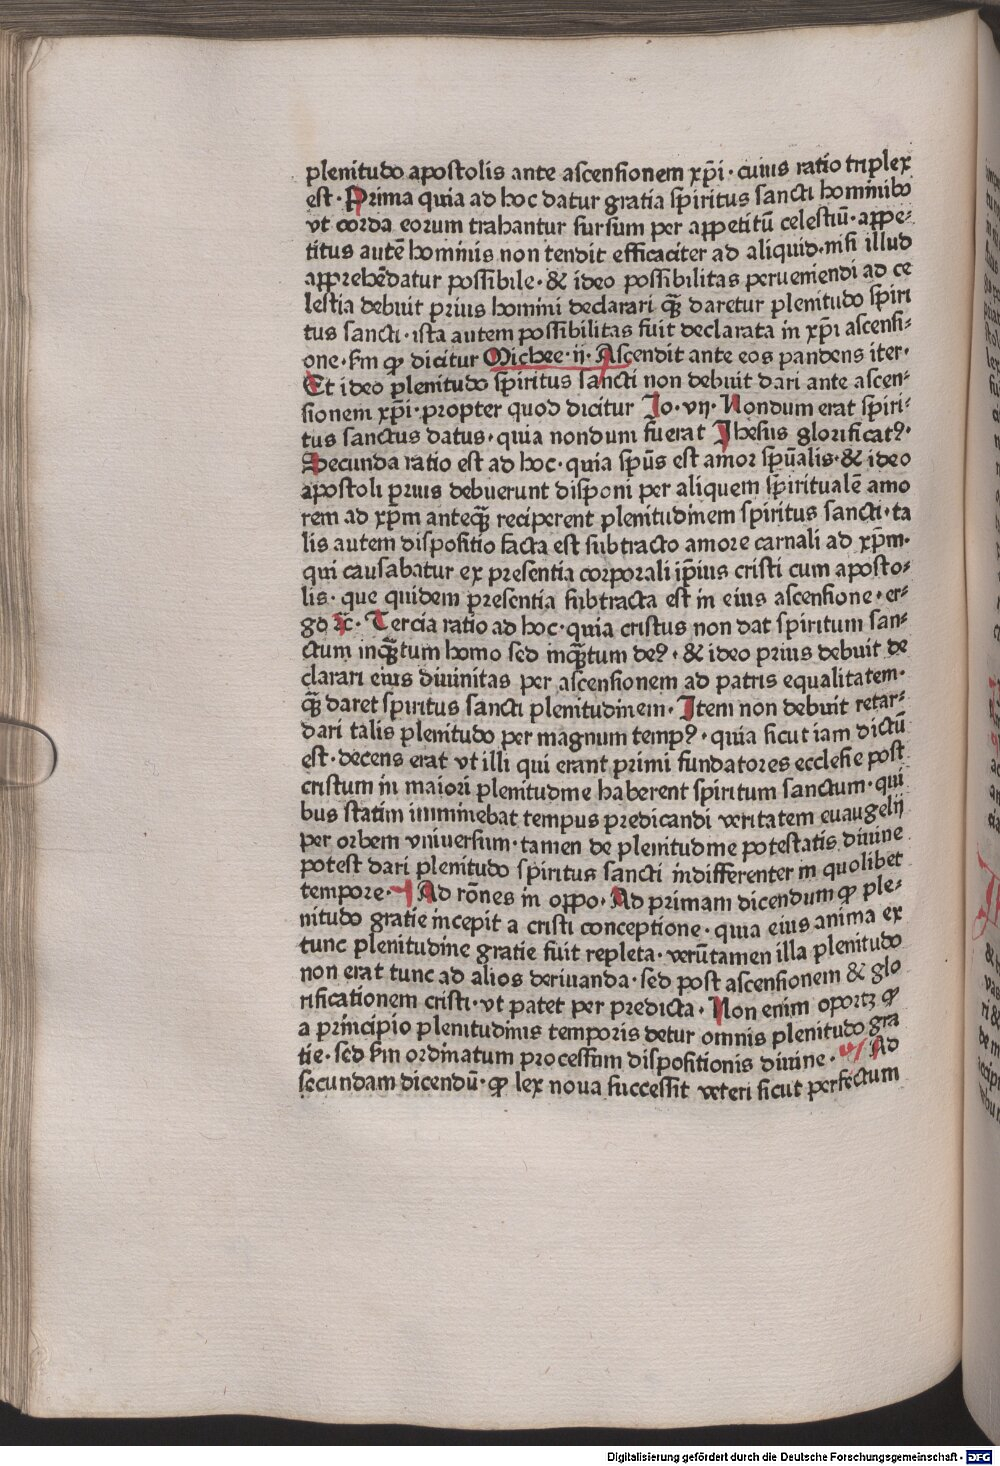 plenitudo apostolis ante ascensionem xp̄i · cuius ratio triplex
est · Prima quia ad hoc datur gratia spiritus sancti hominibꝰ
vt corda eorum trahantur sursum per appetitū celestiū · appe⸗
titus autē hominis non tendit efficaciter ad aliquid · nisi illud
apprehēdatur possibile · & ideo possibilitas perueniendi ad ce
lestia debuit prius homini declarari qȝ̄ daretur plenitudo spiri
tus sancti · ista autem possibilitas fuit declarata in xp̄i ascensi⸗
one · sm̄ ꝙ dicitur Michee · ij · Ascendit ante eos pandens iter ·
Et ideo plenitudo spiritus sancti non debuit dari ante ascen⸗
sionem xp̄i · propter quod dicitur Jo · vij · Nondum erat spiri⸗
tus sanctus datus · quia nondum fuerat Jhesus glorificatꝰ ·
Secunda ratio est ad hoc · quia sp̄us est amor sp̄ualis · & ideo
apostoli prius debuerunt disponi per aliquem spiritualē amo
rem ad xp̄m anteqȝ̄ reciperent plenitudinem spiritus sancti · ta
lis autem dispositio facta est subtracto amore carnali ad xp̄m ·
qui causabatur ex presentia corporali ip̄ius cristi cum aposto⸗
lis · que quidem presentia subtracta est in eius ascensione · er⸗
go ꝛc̄ · Tercia ratio ad hoc · quia cristus non dat spiritum san⸗
ctum inqȝ̄tum homo sed inqȝ̄tum deꝰ · & ideo prius debuit de
clarari eius diuinitas per ascensionem ad patris equalitatem ·
qȝ̄ daret spiritus sancti plenitudinem · Item non debuit retar⸗
dari talis plenitudo per magnum tempꝰ · quia sicut iam dictū
est · decens erat vt illi qui erant primi fundatores ecclesie post
cristum in maiori plenitudine haberent spiritum sanctum · qui
bus statim imminebat tempus predicandi veritatem euaugelij
per orbem vniuersum · tamen de plenitudine potestatis diuine
potest dari plenitudo spiritus sancti indifferenter in quolibet
tempore · Ad rōnes in oppo · Ad primam dicendum ꝙ ple⸗
nitudo gratie incepit a cristi conceptione · quia eius anima ex
tunc plenitudine gratie fuit repleta · verūtamen illa plenitudo
non erat tunc ad alios deriuanda · sed post ascensionem & glo
rificationem cristi · vt patet per predicta · Non enim oportȝ ꝙ
a principio plenitudinis temporis detur omnis plenitudo gra
tie · sed sm̄ ordinatum processum dispositionis diuine · Ad
secundam dicendū · ꝙ lex noua successit veteri sicut perfectum
Digitalisierung gefördert durch die Deutsche Forschungsgemeinschaft · DFG